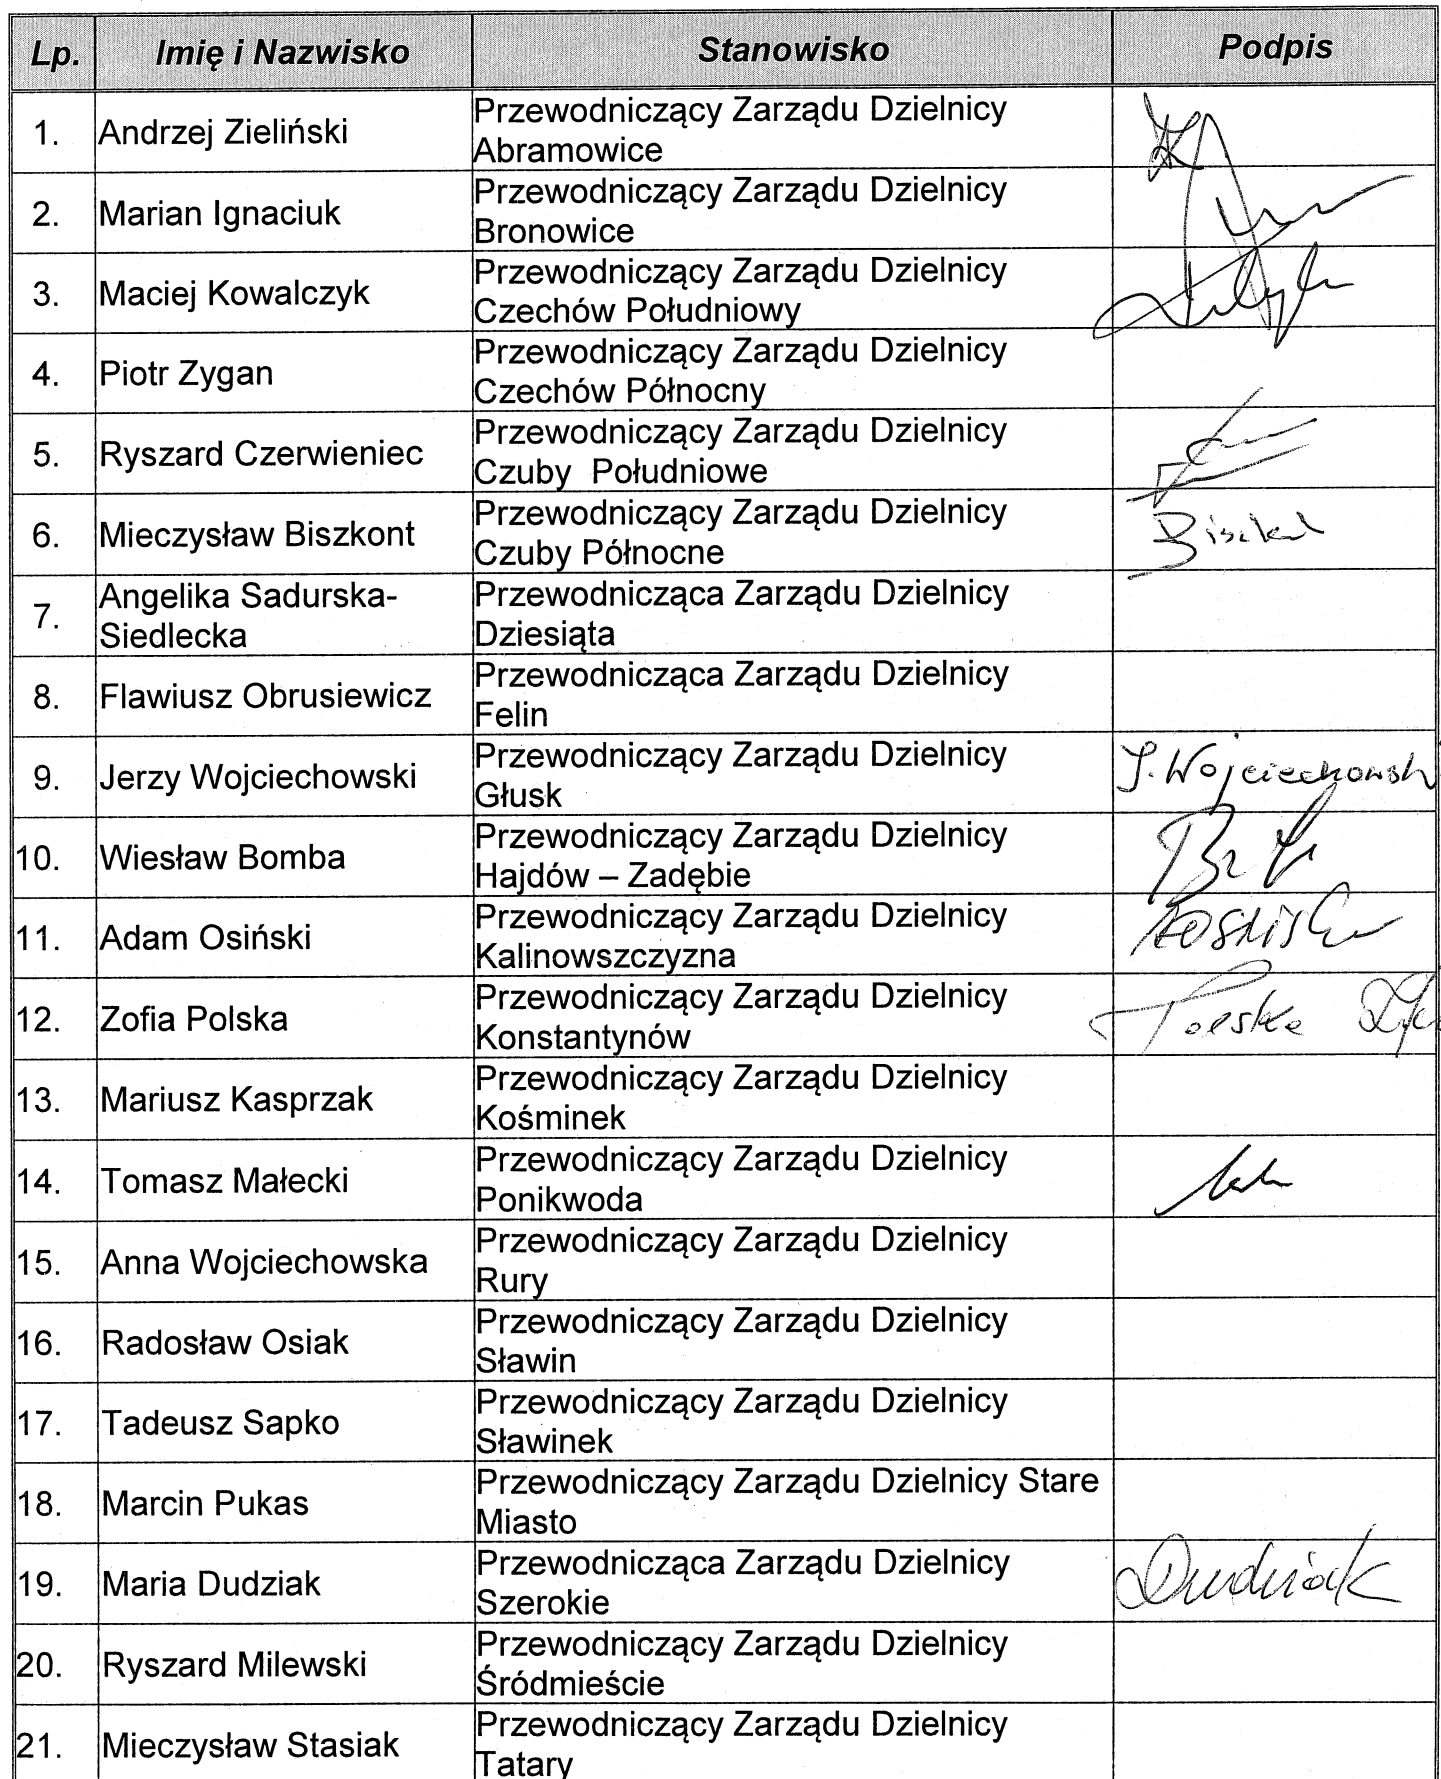 Lp. Imię i Nazwisko Stanowisko Podpis
1. Andrzej Zieliński Przewodniczący Zarządu Dzielnicy
Abramowice
2. Marian Ignaciuk Przewodniczący Zarządu Dzielnicy
Bronowice
3. Maciej Kowalczyk Przewodniczący Zarządu Dzielnicy
Czechów Południowy
4. Piotr Zygan Przewodniczący Zarządu Dzielnicy
Czechów Północny
5. Ryszard Czerwieniec Przewodniczący Zarządu Dzielnicy
Czuby Południowe
6. Mieczysław Biszkont Przewodniczący Zarządu Dzielnicy
Czuby Północne
7. Angelika Sadurska-
Siedlecka
Przewodnicząca Zarządu Dzielnicy
Dziesiąta
8. Flawiusz Obrusiewicz Przewodnicząca Zarządu Dzielnicy
Felin
9. Jerzy Wojciechowski Przewodniczący Zarządu Dzielnicy
Głusk
J. Wojciechowski
10. Wiesław Bomba Przewodniczący Zarządu Dzielnicy
Hajdów – Zadębie
11. Adam Osiński Przewodniczący Zarządu Dzielnicy
Kalinowszczyzna
12. Zofia Polska Przewodniczący Zarządu Dzielnicy
Konstantynów
Polska
13. Mariusz Kasprzak Przewodniczący Zarządu Dzielnicy
Kośminek
14. Tomasz Małecki Przewodniczący Zarządu Dzielnicy
Ponikwoda
15. Anna Wojciechowska Przewodniczący Zarządu Dzielnicy
Rury
16. Radosław Osiak Przewodniczący Zarządu Dzielnicy
Sławin
17. Tadeusz Sapko Przewodniczący Zarządu Dzielnicy
Sławinek
18. Marcin Pukas Przewodniczący Zarządu Dzielnicy Stare
Miasto
19. Maria Dudziak Przewodnicząca Zarządu Dzielnicy
Szerokie
Dudziak
20. Ryszard Milewski Przewodniczący Zarządu Dzielnicy
Śródmieście
21. Mieczysław Stasiak Przewodniczący Zarządu Dzielnicy
Tatary